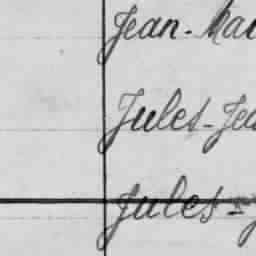 Jean-Mau
Jules-Jea
Jules-J